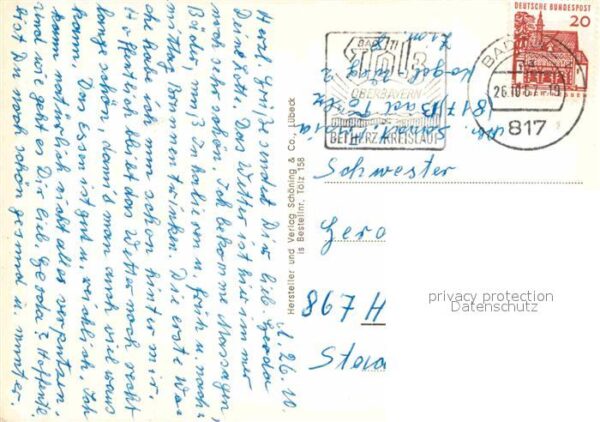 d. 26. 10.
Herzl. Grüße sendet Dir lieb. Gerda
Deine
Das Wetter ist hier immer
noch sehr schön. Ich bekomme Massagen,
Bäder, muß Inhalieren u. früh u. nach-
mittag Brunnen trinken. Die erste Wo-
che habe ich nun schon hinter mir.
Hoffentlich bleibt das Wetter noch recht
lange schön, damit man auch viel wandern
kann. Das Essen ist gut u. reichlich. Ich
kann natürlich nicht alles verputzen.
und wie geht es Dir lieb. Gerda? Hoffentl.
bist Du noch schön gesund u. munter.
Hersteller und Verlag Schöning & Co., Lübeck
is Bestellnr. Tölz 158
BAD
Tölz
OBERBAYERN
BEI HERZ KREISLAUF
DEUTSCHE BUNDESPOST
20
BAD TÖLZ
26.10.67.-19
817
817 Bad Tölz
Schwester
Gero
867 H
privacy protection
Datenschutz